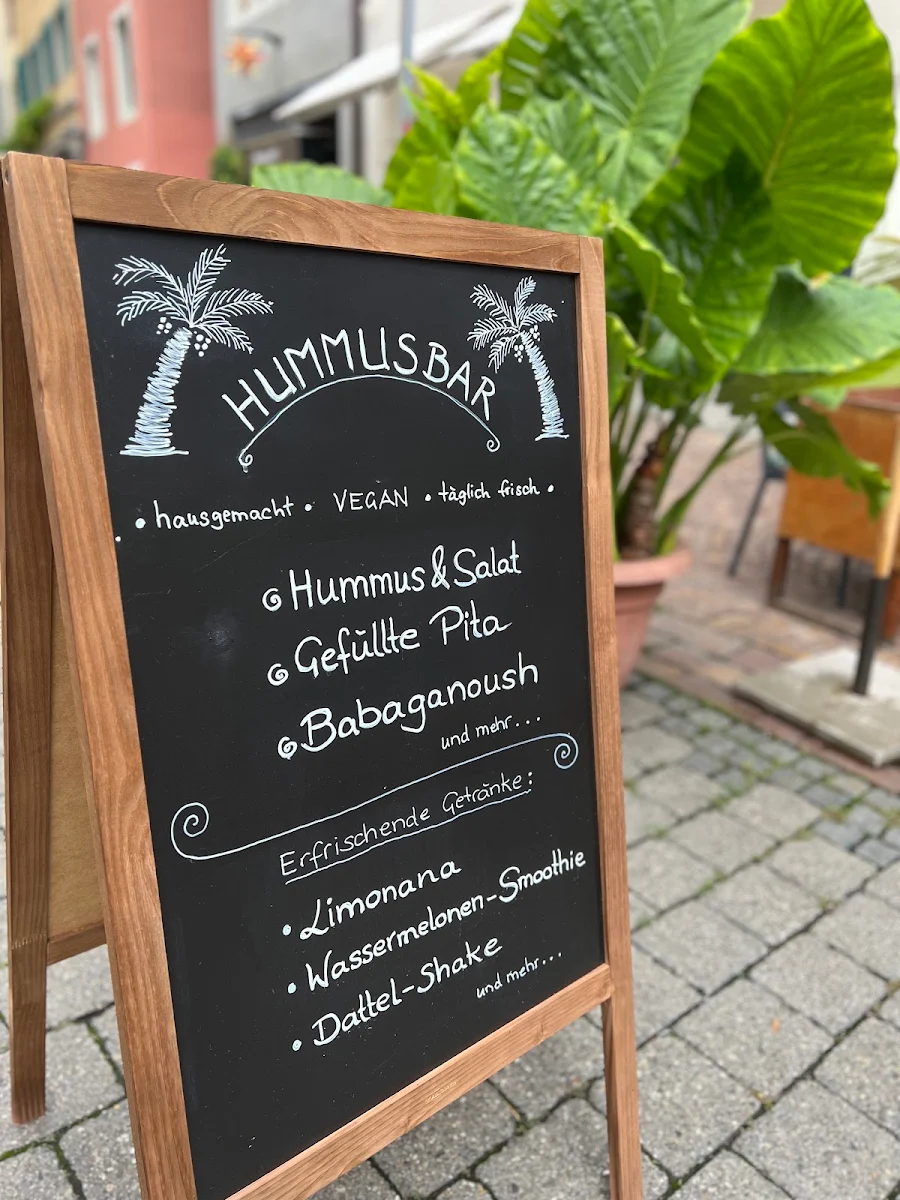 HUMMUSBAR
• hausgemacht • VEGAN • täglich frisch •
Hummus & Salat
Gefüllte Pita
Babaganoush
und mehr...
Erfrischende Getränke:
• Limonana
• Wassermelonen-Smoothie
• Dattel-Shake
und mehr...